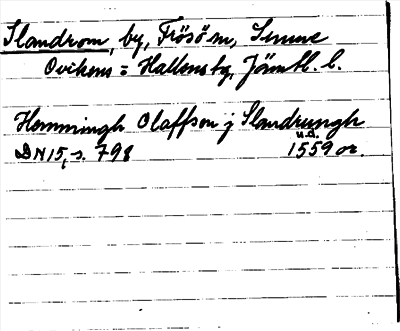 Slandrom, by, Frösö sn, Sunne
Ovikens = Hallens tg, Jämtl. l.
Hemmingh Olaffson j Slandrungh
u.d.
DN 15, s. 798 1559 or.